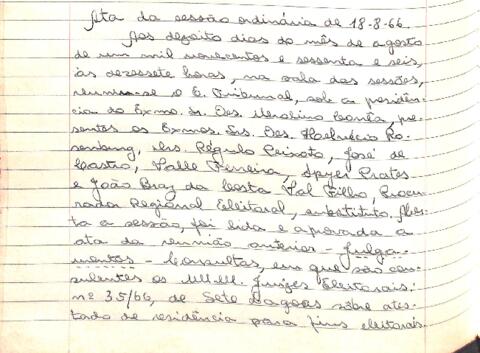 Ata da sessão ordinária de 18-8-66.
Aos dezoito dias do mês de agosto
de um mil novecentos e sessenta e seis,
às dezessete horas, na sala das sessões,
reuniu-se o E. Tribunal, sob a presidên-
cia do Exmo. Sr. Des. Merolino Corrêa, pre-
sentes os Exmos. Srs. Des. Ro-
senburg, drs. Régulo Peixoto, José de
Castro, Valle Ferreira, Spyer Prates
e João Braz da Costa Val Filho, Procu-
rador Regional Eleitoral, substituto. Aber-
ta a sessão, foi lida e aprovada a
ata da reunião anterior - Julga-
mentos - Consultas, em que são con-
sulentes os MM. Juízes Eleitorais:
nº 35/66, de Sete Lagoas sobre ates-
tado de residência para fins eleitorais.